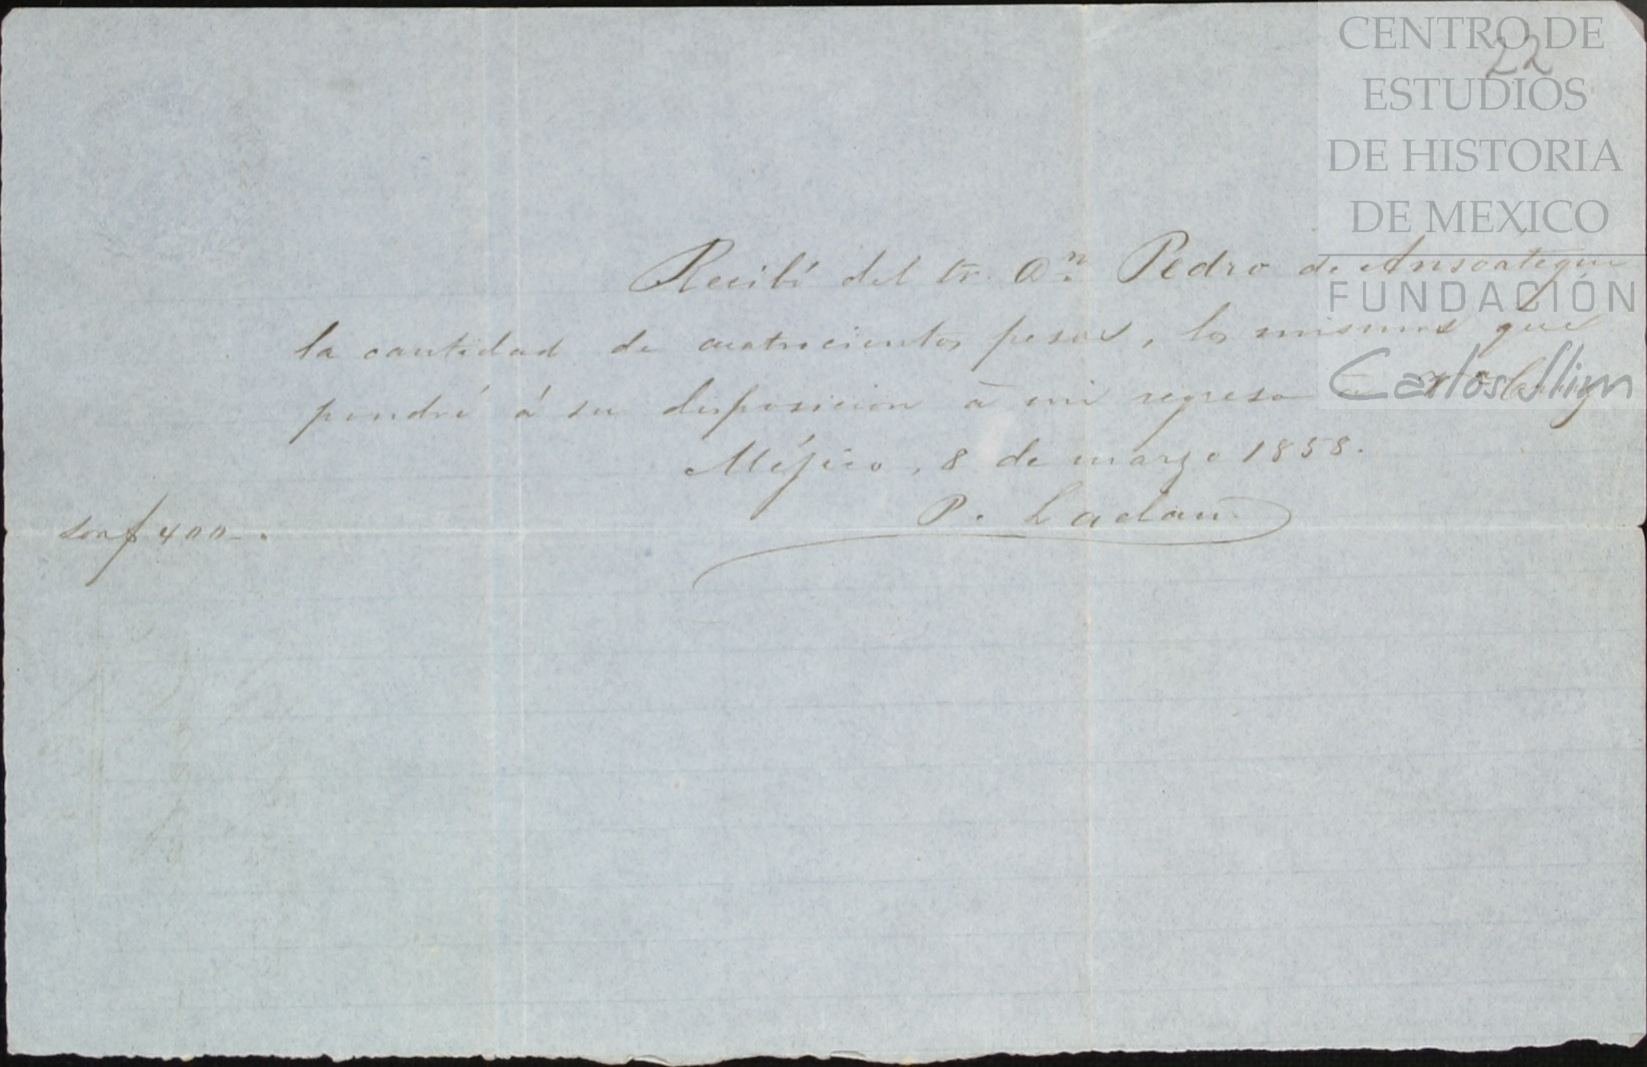 CENTRO DE
ESTUDIOS
DE HISTORIA
DE MEXICO
FUNDACIÓN
Carlos Slim
22
Recibí del Sr. Dn. Pedro de Ansoategui
la cantidad de cuatrocientos pesos, los mismos que
pondré á su disposicion á mi regreso
Méjico, 8 de marzo 1858.
P. Ladau
Son $ 400-.